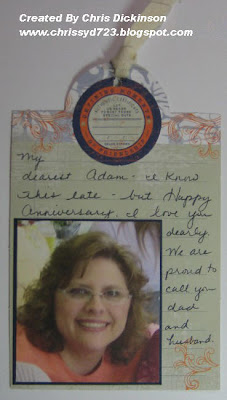 Created By Chris Dickinson
www.chrissyd723.blogspot.com
My
dearest Adam - I know
this late - but Happy
Anniversary. I love you
dearly.
We are
proud to
call you
dad
and
husband.